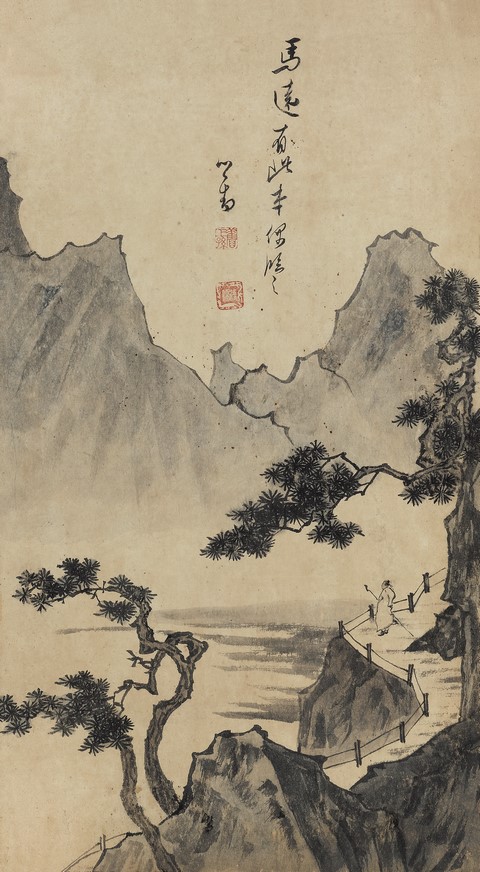 馬遠有此本偶臨之
心畬